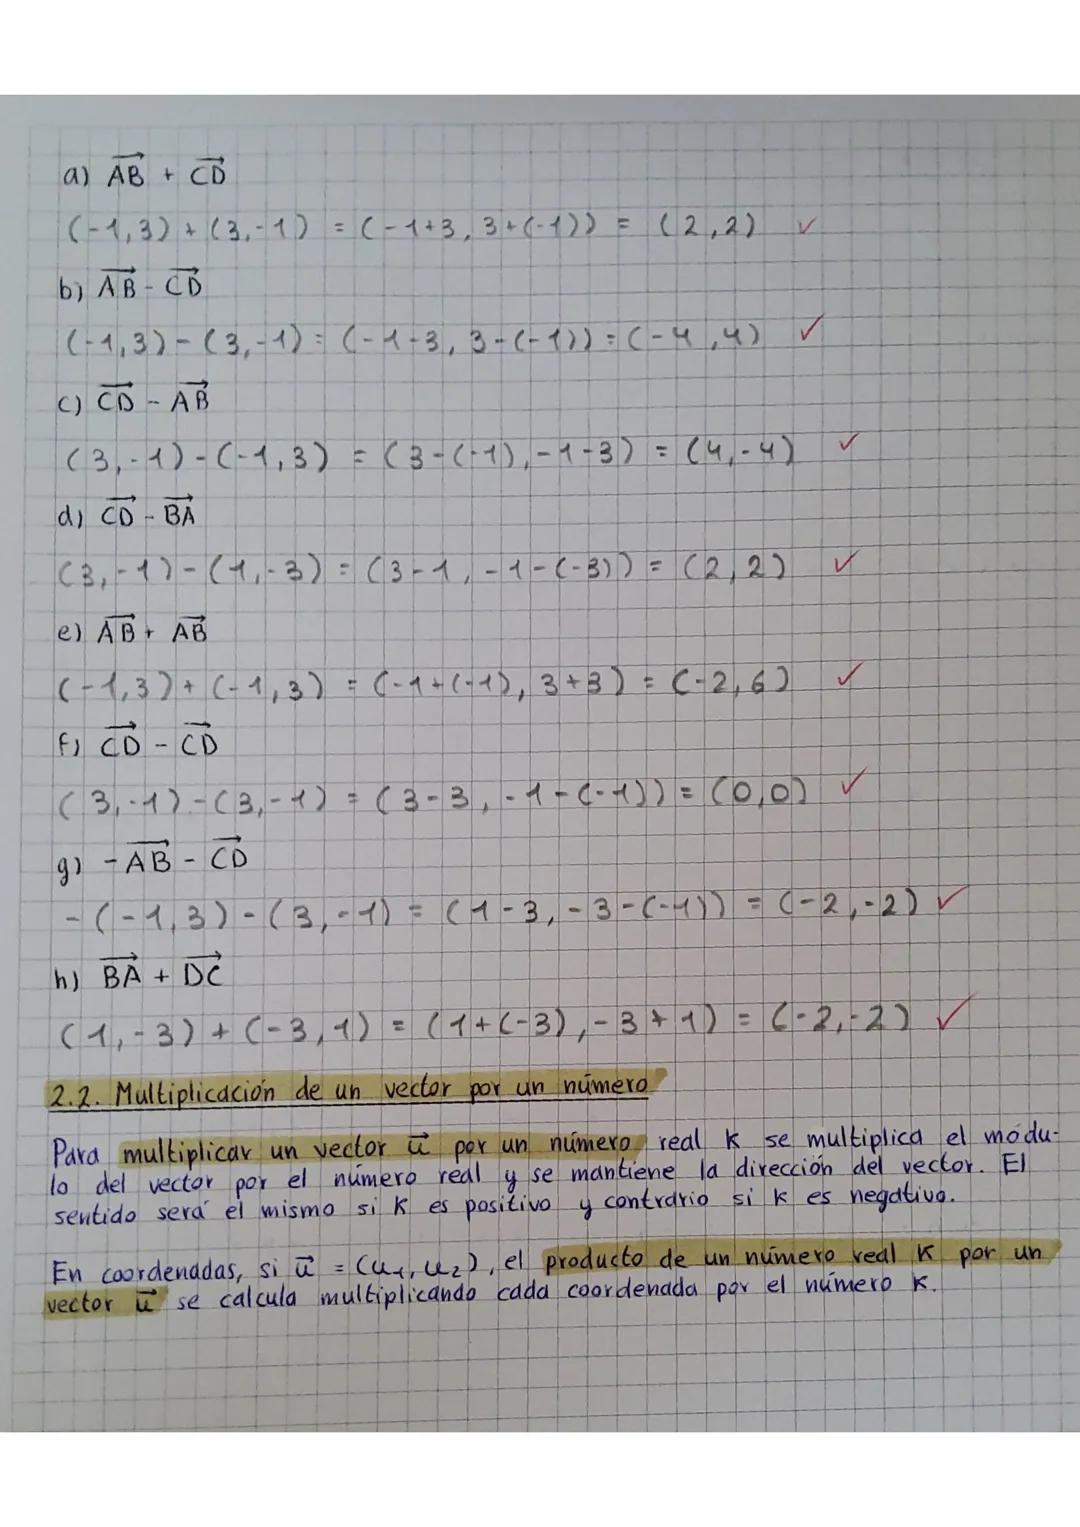 a) AB + CD
(-1,3) + (3,-1) = (-1+3, 3+(-1)) = (2,2) ✓
b) AB - CD
(-1,3) - (3,-1) = (-1-3, 3-(-1)) = (-4,4) ✓
c) CD - AB
(3,-1) - (-1,3) = (3-(-1), -1-3) = (4,-4) ✓
d) CD - BA
(3,-1) - (1,-3) = (3-1, -1-(-3)) = (2,2) ✓
e) AB + AB
(-1,3) + (-1,3) = (-1+(-1), 3+3) = (-2,6) ✓
f) CD - CD
(3,-1) - (3,-1) = (3-3, -1-(-1)) = (0,0) ✓
g) -AB - CD
-(-1,3) - (3,-1) = (1-3, -3-(-1)) = (-2,-2) ✓
h) BA + DC
(1,-3) + (-3,1) = (1+(-3), -3+1) = (-2,-2) ✓
2.2. Multiplicación de un vector por un número
Para multiplicar un vector u por un número real k se multiplica el módu-
lo del vector por el número real y se mantiene la dirección del vector. El
sentido será el mismo si k es positivo y contrario si k es negativo.
En coordenadas, si u = (u₁, u₂), el producto de un número real k por un
vector u se calcula multiplicando cada coordenada por el número k.